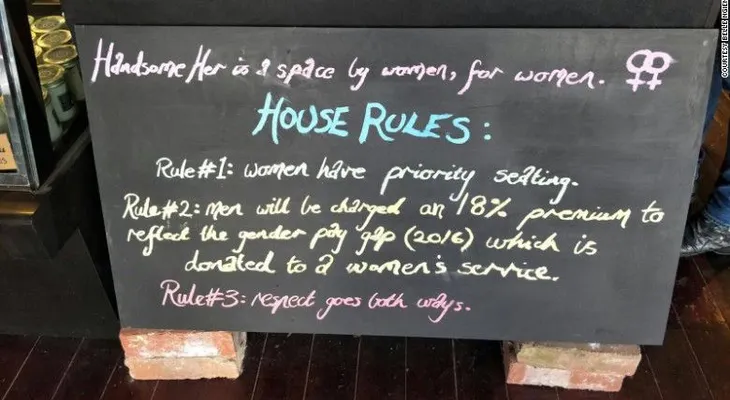 Handsome Her is a space by women, for women.
HOUSE RULES:
Rule#1: women have priority seating.
Rule#2: men will be charged an 18% premium to
reflect the gender pay gap (2016) which is
donated to a women's service.
Rule#3: respect goes both ways.
COURTESY BELLE NGIEN